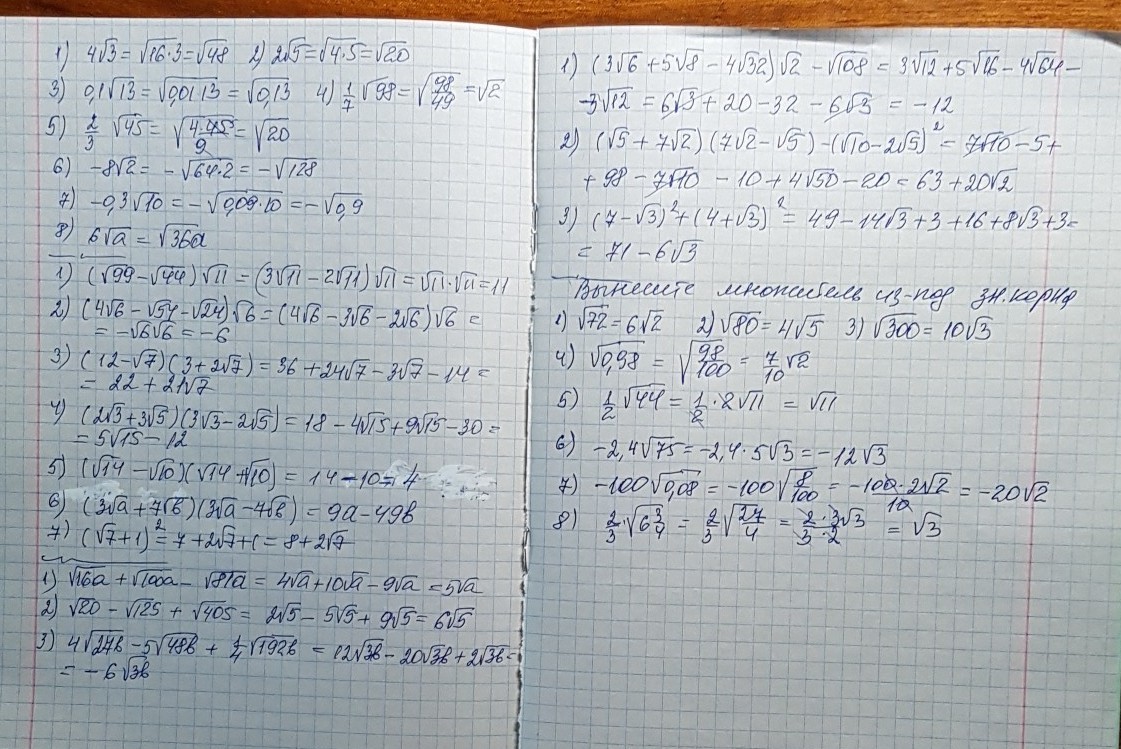 1) 4√3 = √16·3 = √48 2) 2√5 = √4·5 = √20
3) 0,1√13 = √0,01·13 = √0,13 4) 1/7 √98 = √98/49 = √2
5) 2/3 √45 = √4·45/9 = √20
6) -8√2 = -√64·2 = -√128
7) -0,3√10 = -√0,09·10 = -√0,9
8) 6√a = √36a
1) (√99 - √44)√11 = (3√11 - 2√11)√11 = √11·√11 = 11
2) (4√6 - √54 - √24)√6 = (4√6 - 3√6 - 2√6)√6 =
= -√6√6 = -6
3) (12 - √7)(3 + 2√7) = 36 + 24√7 - 3√7 - 14 =
= 22 + 21√7
4) (2√3 + 3√5)(3√3 - 2√5) = 18 - 4√15 + 9√15 - 30 =
= 5√15 - 12
5) (√14 - √10)(√14 + √10) = 14 - 10 = 4
6) (3√a + 7√b)(3√a - 7√b) = 9a - 49b
7) (√7 + 1)² = 7 + 2√7 + 1 = 8 + 2√7
1) √16a + √100a - √81a = 4√a + 10√a - 9√a = 5√a
2) √20 - √125 + √405 = 2√5 - 5√5 + 9√5 = 6√5
3) 4√27b - 5√48b + 1/4 √192b = 12√3b - 20√3b + 2√3b =
= -6√3b
1) (3√6 + 5√8 - 4√32)√2 - √108 = 3√12 + 5√16 - 4√64 -
-3√12 = 6√3 + 20 - 32 - 6√3 = -12
2) (√5 + 7√2)(7√2 - √5) - (√10 - 2√5)² = 7√10 - 5 +
+ 98 - 7√10 - 10 + 4√50 - 20 = 63 + 20√2
3) (7 - √3)² + (4 + √3)² = 49 - 14√3 + 3 + 16 + 8√3 + 3 =
= 71 - 6√3
Вынесите множитель из-под зн.корня
1) √72 = 6√2 2) √80 = 4√5 3) √300 = 10√3
4) √0,98 = √98/100 = 7/10 √2
5) 1/2 √44 = 1/2 · 2√11 = √11
6) -2,4√75 = -2,4·5√3 = -12√3
7) -100√0,08 = -100√8/100 = -100·2√2/10 = -20√2
8) 2/3 · √6 3/4 = 2/3 √27/4 = 2·3√3/3·2 = √3